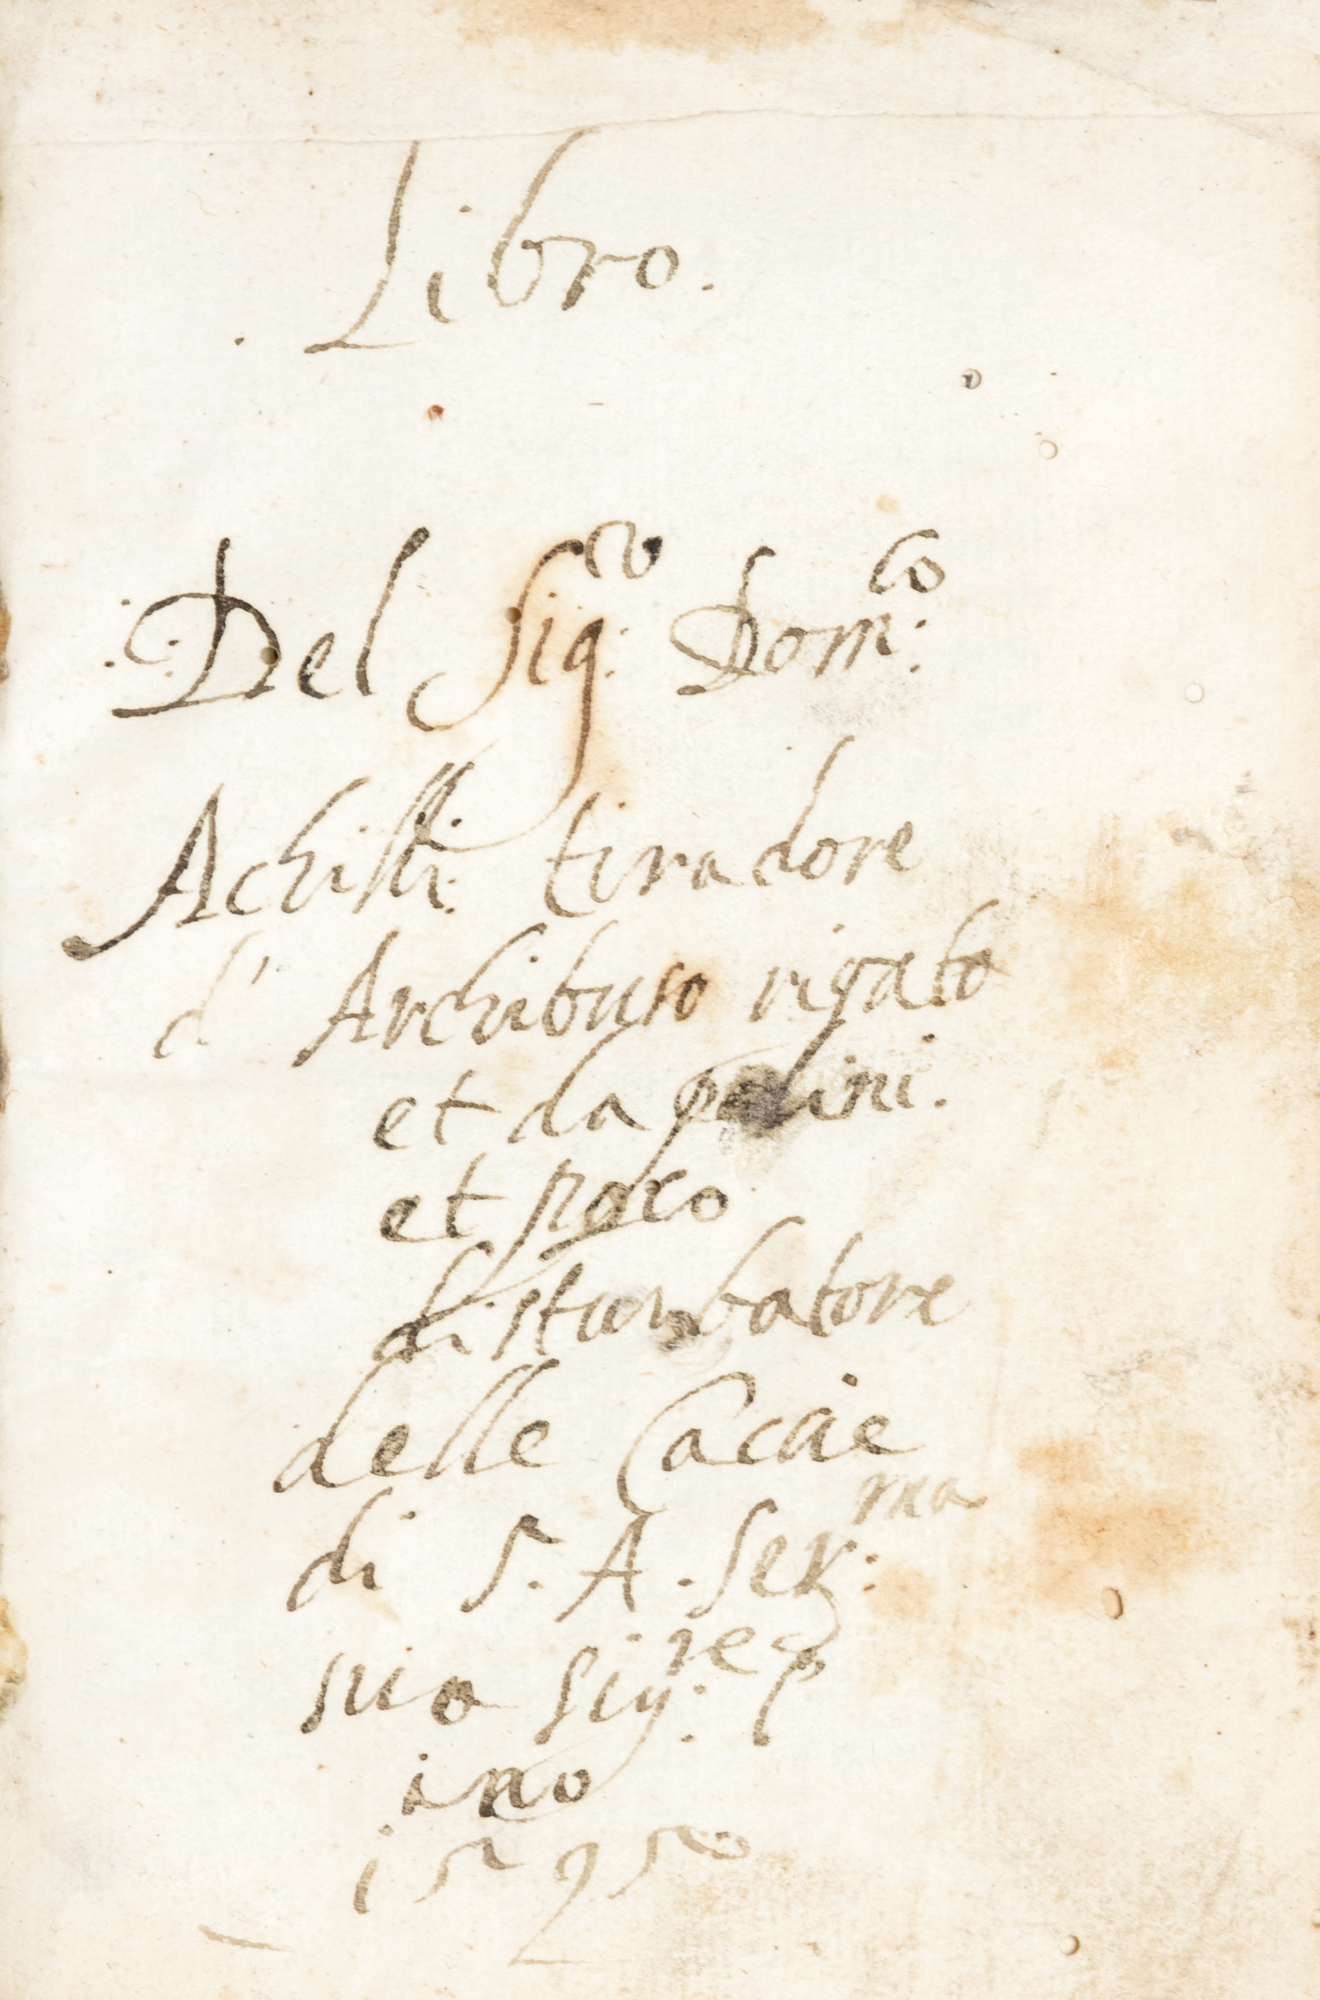 Libro.
Del Sig:ro Dom:co
Achilli tiradore
d' Archibuso rigato
et da palini.
et poco
disturbatore
delle Cacie
di S. A. Ser:ma
suo Sig:re p
ano